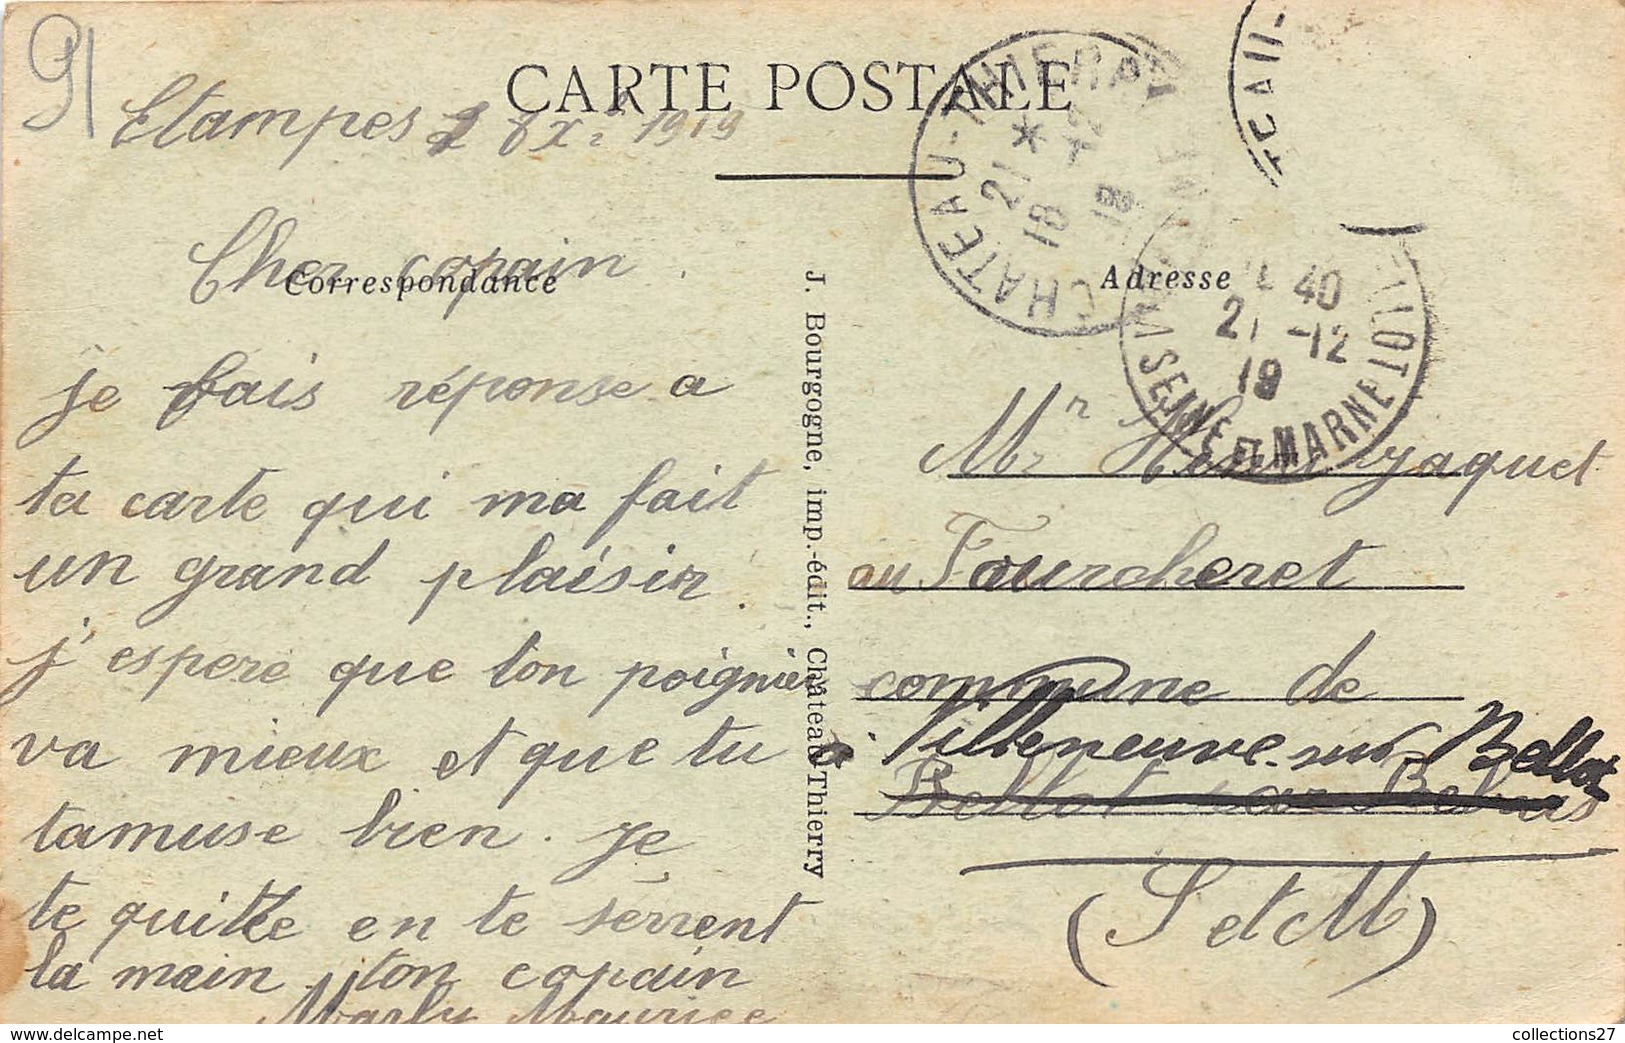 91
CARTE POSTALE
Etampes 8 Xe 1919
CHATEAU-THIERRY
21 * 12
18 19
Correspondance
Adresse
40
21 -12
19
SEINE ET MARNE
Cher copain.
je fais réponse a
ta carte qui ma fait
un grand plaisir.
j'espere que ton poignier
va mieux et que tu
tamuse bien. je
te quitte en te serrent
la main. ton copain
Marly Maurice
J. Bourgogne, imp.-édit., Château-Thierry
Mr Henri jaquet
au Fourcheret
commune de
Villeneuve-sur-Bellot
Bellot sur
(S et M)
collections27